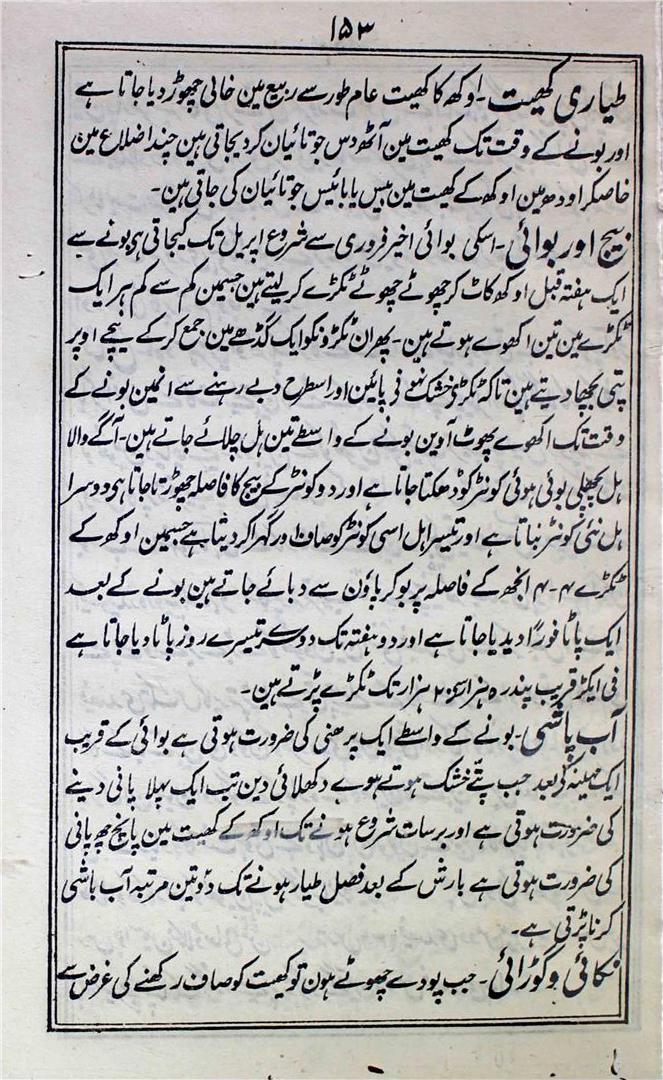 ۱۵۳
طیاری کھیت۔ اوکھ کا کھیت عام طور سے ربیع مین خالی چھوڑ دیا جاتا ہے
اور بونے کے وقت تک کھیت مین آٹھ دس جوتائیان کر دیجاتی ہین چند اضلاع مین
خاصکر اودھ مین اوکھ کے کھیت مین بیس یا بائیس جوتائیان کی جاتی ہین۔
بیج اور بوائی۔ اسکی بوائی اخیر فروری سے شروع اپریل تک کیجاتی ہی بونے سے
ایک ہفتہ قبل اوکھ کاٹ کر چھوٹے چھوٹے ٹکڑے کر لیتے ہین جسمین کم سے کم ہر ایک
ٹکڑے مین تین اکھوے ہوتے ہین۔ پھر ان ٹکڑونکو ایک گڈھے مین جمع کر کے نیچے اوپر
پتی بچھا دیتے ہین تاکہ ٹکڑی خشک نہونی پائین اور اسطرح دبے رہنے سے انمین بونے کے
وقت تک اکھوے پھوٹ آوین بونے کے واسطے تین ہل چلائے جاتے ہین۔ آگے والا
ہل پچھلی بوئی ہوئی کونٹر کو ڈھکتا جاتا ہے اور دو کونٹر کے بیچ کا فاصلہ چھوڑتا جاتا ہی دوسرا
ہل نئی کونٹر بناتا ہے اور تیسرا ہل اسی کونٹر کو صاف اور گہرا کر دیتا ہے جسمین اوکھ کے
ٹکڑے ۴-۴ انچھ کے فاصلہ پر بو کر پاؤن سے دبائے جاتے ہین بونے کے بعد
ایک پاٹا فوراً دیدیا جاتا ہے اور دو ہفتہ تک دوسرے تیسرے روز پاٹا دیا جاتا ہے
فی ایکڑ قریب پندرہ ہزار سے ۲۰ ہزار تک ٹکڑے پڑتے ہین۔
آب پاشی۔ بونے کے واسطے ایک پرھنی کی ضرورت ہوتی ہے بوائی کے قریب
ایک مہینہ کے بعد جب پتے خشک ہوتے ہوے دکھلائی دین تب ایک پہلا پانی دینے
کی ضرورت ہوتی ہے اور برسات شروع ہونے تک اوکھ کے کھیت مین پانچ چھ پانی
کی ضرورت ہوتی ہے بارش کے بعد فصل طیار ہونے تک دو تین مرتبہ آب پاشی
کرنا پڑتی ہے۔
نکائی و گوڑائی۔ جب پودے چھوٹے ہون تو کھیت کو صاف رکھنے کی غرض سے